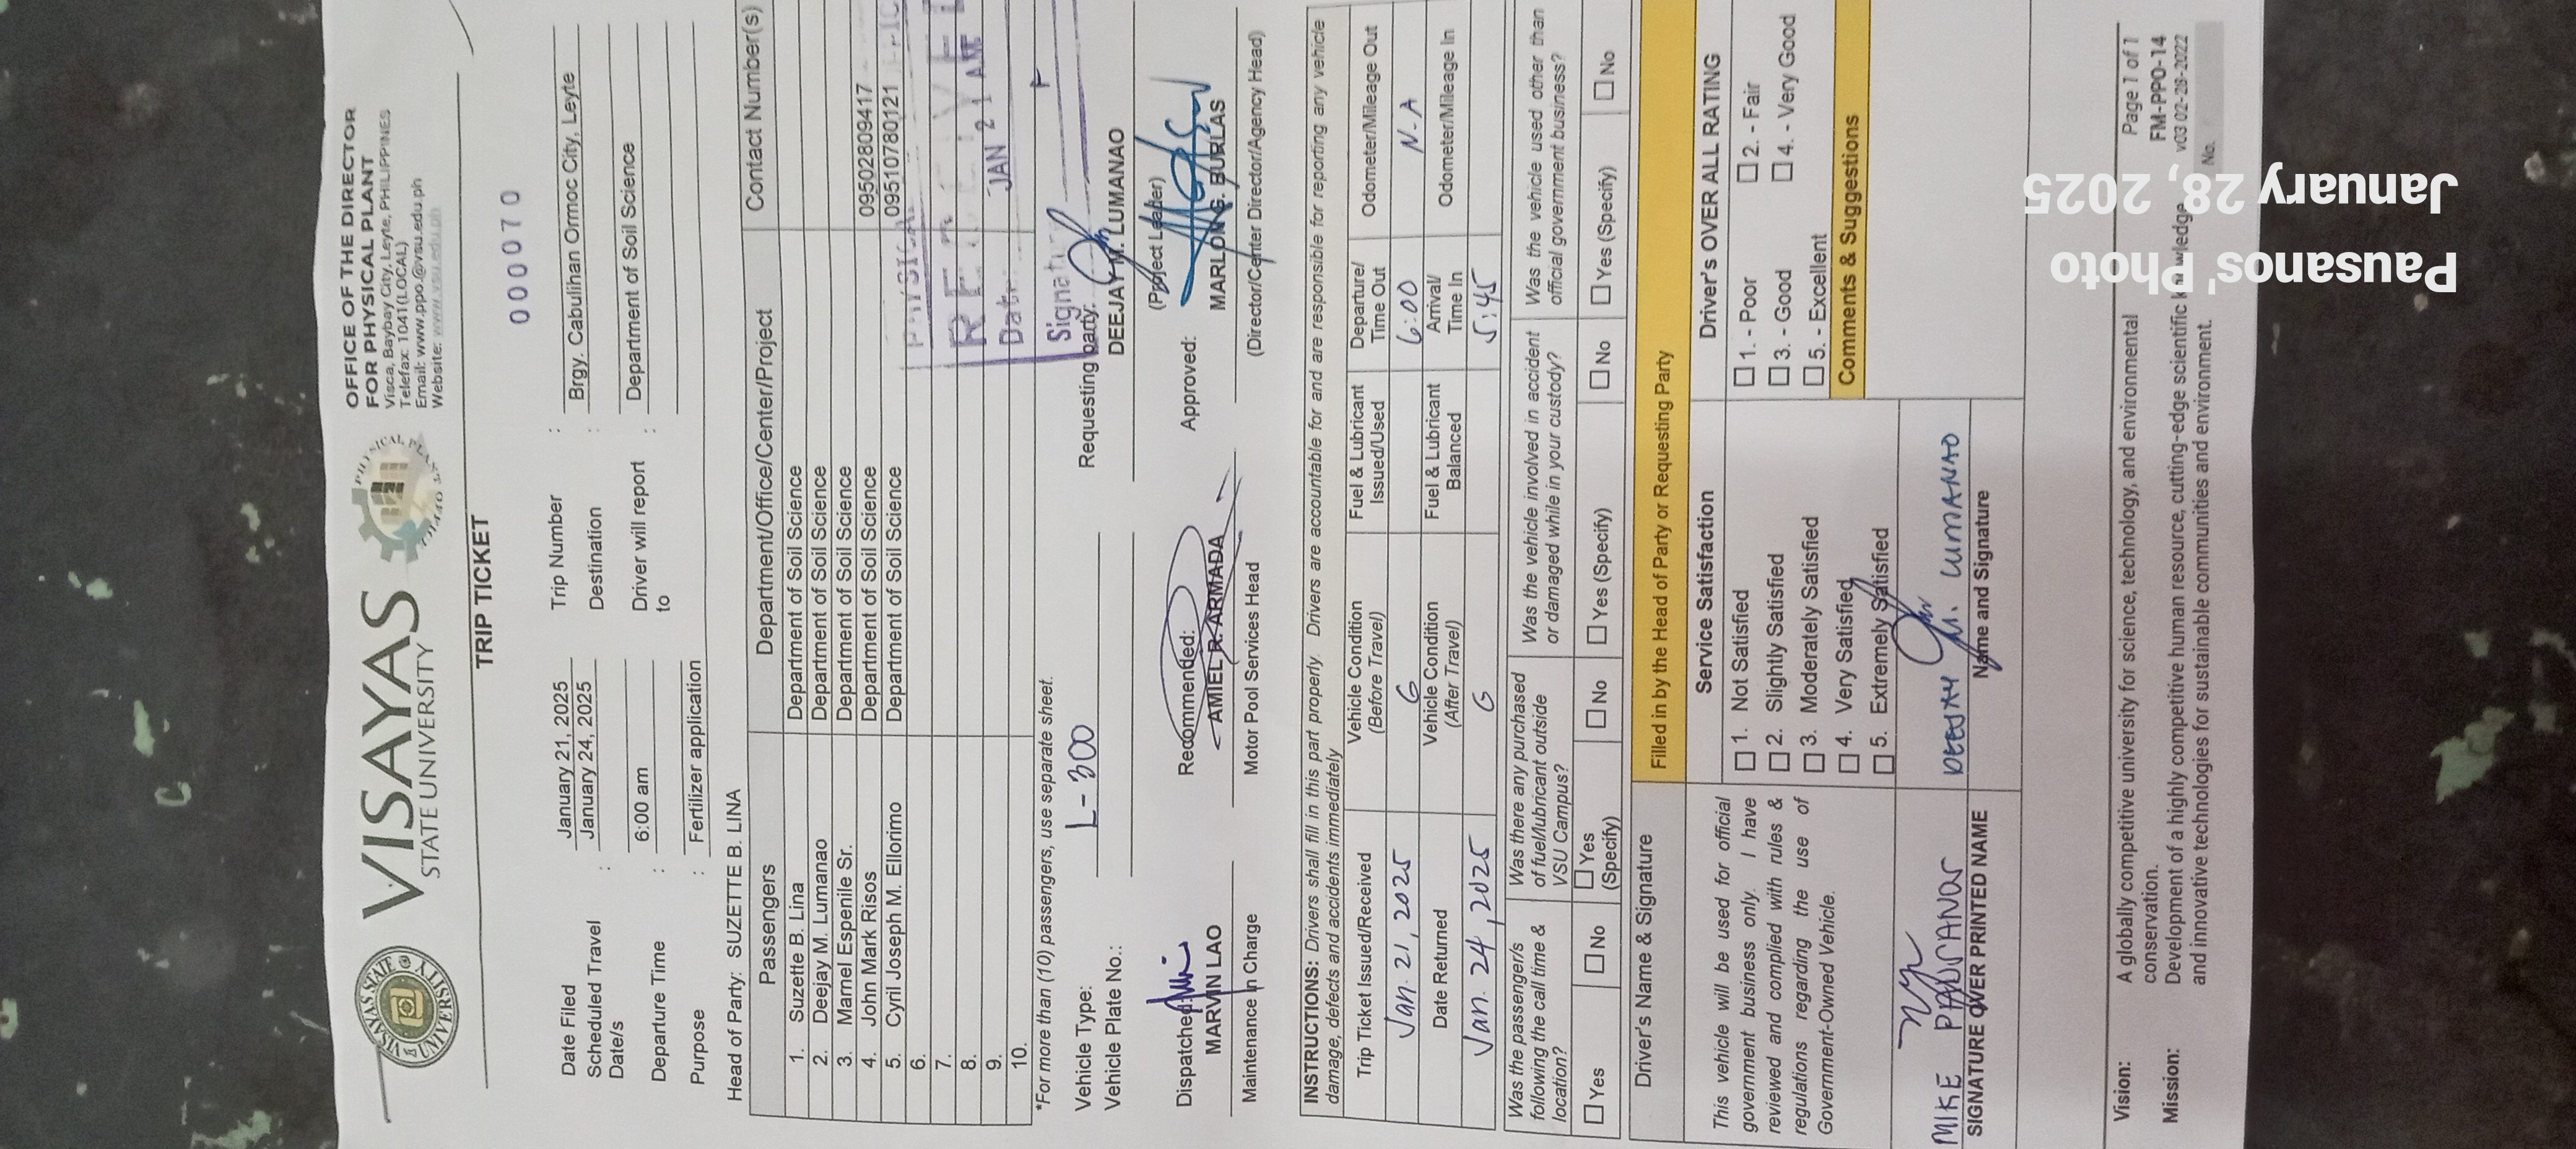 VISAYAS
STATE UNIVERSITY
OFFICE OF THE DIRECTOR
FOR PHYSICAL PLANT
Visca, Baybay City, Leyte, PHILIPPINES
Telefax: 1041(LOCAL)
Email: www.ppo.@vsu.edu.ph
Website: www.vsu.edu.ph
TRIP TICKET
000070
Date Filed : January 21, 2025
Scheduled Travel Date/s : January 24, 2025
Departure Time : 6:00 am
Purpose : Fertilizer application
Trip Number :
Destination : Brgy. Cabulihan Ormoc City, Leyte
Driver will report to : Department of Soil Science
Head of Party: SUZETTE B. LINA
Passengers Department/Office/Center/Project Contact Number(s)
1. Suzette B. Lina Department of Soil Science
2. Deejay M. Lumanao Department of Soil Science
3. Marnel Espenile Sr. Department of Soil Science
4. John Mark Risos Department of Soil Science 09502809417
5. Cyril Joseph M. Ellorimo Department of Soil Science 09510780121
6.
7.
8.
9.
10.
JAN 21
*For more than (10) passengers, use separate sheet.
Vehicle Type: L-300
Vehicle Plate No.:
Requesting party:
DEEJAY M. LUMANAO
(Project Leader)
Dispatched:
MARVIN LAO
Maintenance In Charge
Recommended:
AMIEL R. ARMADA
Motor Pool Services Head
Approved:
MARLON G. BURLAS
(Director/Center Director/Agency Head)
INSTRUCTIONS: Drivers shall fill in this part properly. Drivers are accountable for and are responsible for reporting any vehicle
damage, defects and accidents immediately
Trip Ticket Issued/Received Vehicle Condition (Before Travel) Fuel & Lubricant Issued/Used Departure/ Time Out Odometer/Mileage Out
Jan. 21, 2025 G 6:00 N-A
Date Returned Vehicle Condition (After Travel) Fuel & Lubricant Balanced Arrival/ Time In Odometer/Mileage In
Jan. 24, 2025 G 5:45
Was the passenger/s following the call time & location? Was there any purchased of fuel/lubricant outside VSU Campus? Was the vehicle involved in accident or damaged while in your custody? Was the vehicle used other than official government business?
Yes No Yes (Specify) No Yes (Specify) No Yes (Specify) No
Driver's Name & Signature Filled in by the Head of Party or Requesting Party
This vehicle will be used for official
government business only. I have
reviewed and complied with rules &
regulations regarding the use of
Government-Owned Vehicle.
Service Satisfaction
1. Not Satisfied
2. Slightly Satisfied
3. Moderately Satisfied
4. Very Satisfied
5. Extremely Satisfied
Driver's OVER ALL RATING
1. - Poor 2. - Fair
3. - Good 4. - Very Good
5. - Excellent
Comments & Suggestions
MIKE PAUSANOS
SIGNATURE OVER PRINTED NAME
DEEJAY M. LUMANAO
Name and Signature
Vision: A globally competitive university for science, technology, and environmental
conservation.
Mission: Development of a highly competitive human resource, cutting-edge scientific knowledge
and innovative technologies for sustainable communities and environment.
Page 1 of 1
FM-PPO-14
v03 02-28-2022
No.
Pausanos' Photo
January 28, 2025